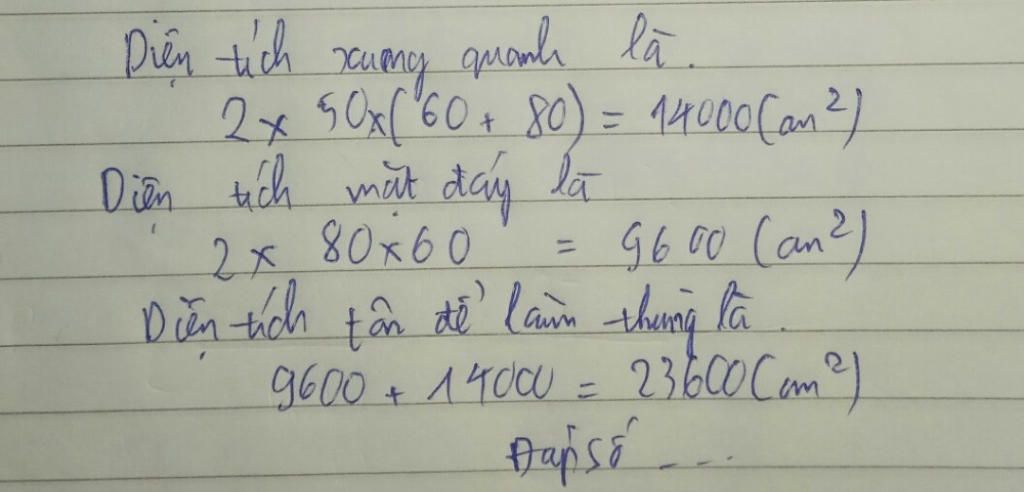 Diện tích xung quanh là.
2 x 50x(60 + 80) = 14000(cm²)
Diện tích mặt đáy là
2 x 80x60 = 9600 (cm²)
Diện tích tôn để làm thùng là.
9600 + 14000 = 23600(cm²)
Đáp số ---